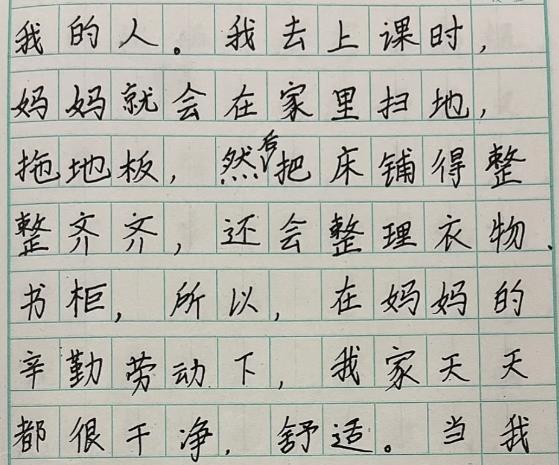 我的人。我去上课时，
妈妈就会在家里扫地，
拖地板，然后把床铺得整
整齐齐，还会整理衣物、
书柜，所以，在妈妈的
辛勤劳动下，我家天天
都很干净，舒适。当我